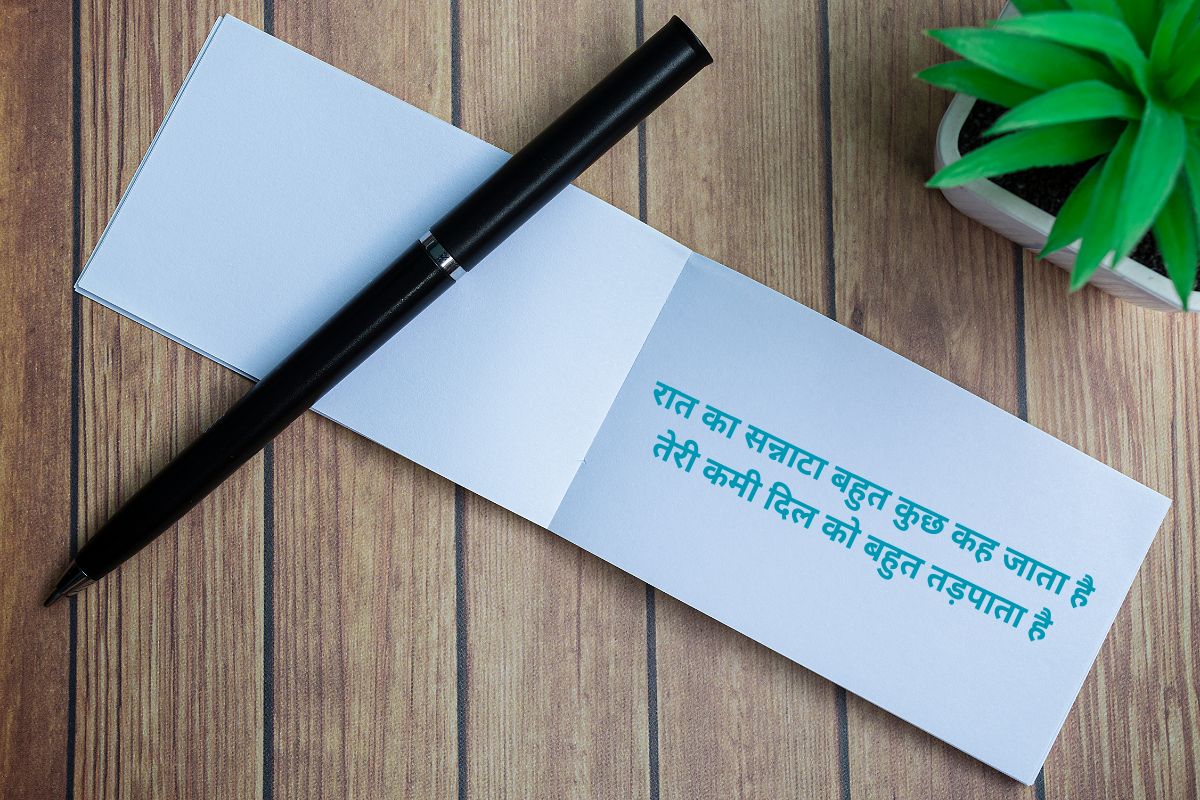 रात का सन्नाटा बहुत कुछ कह जाता है
तेरी कमी दिल को बहुत तड़पाता है